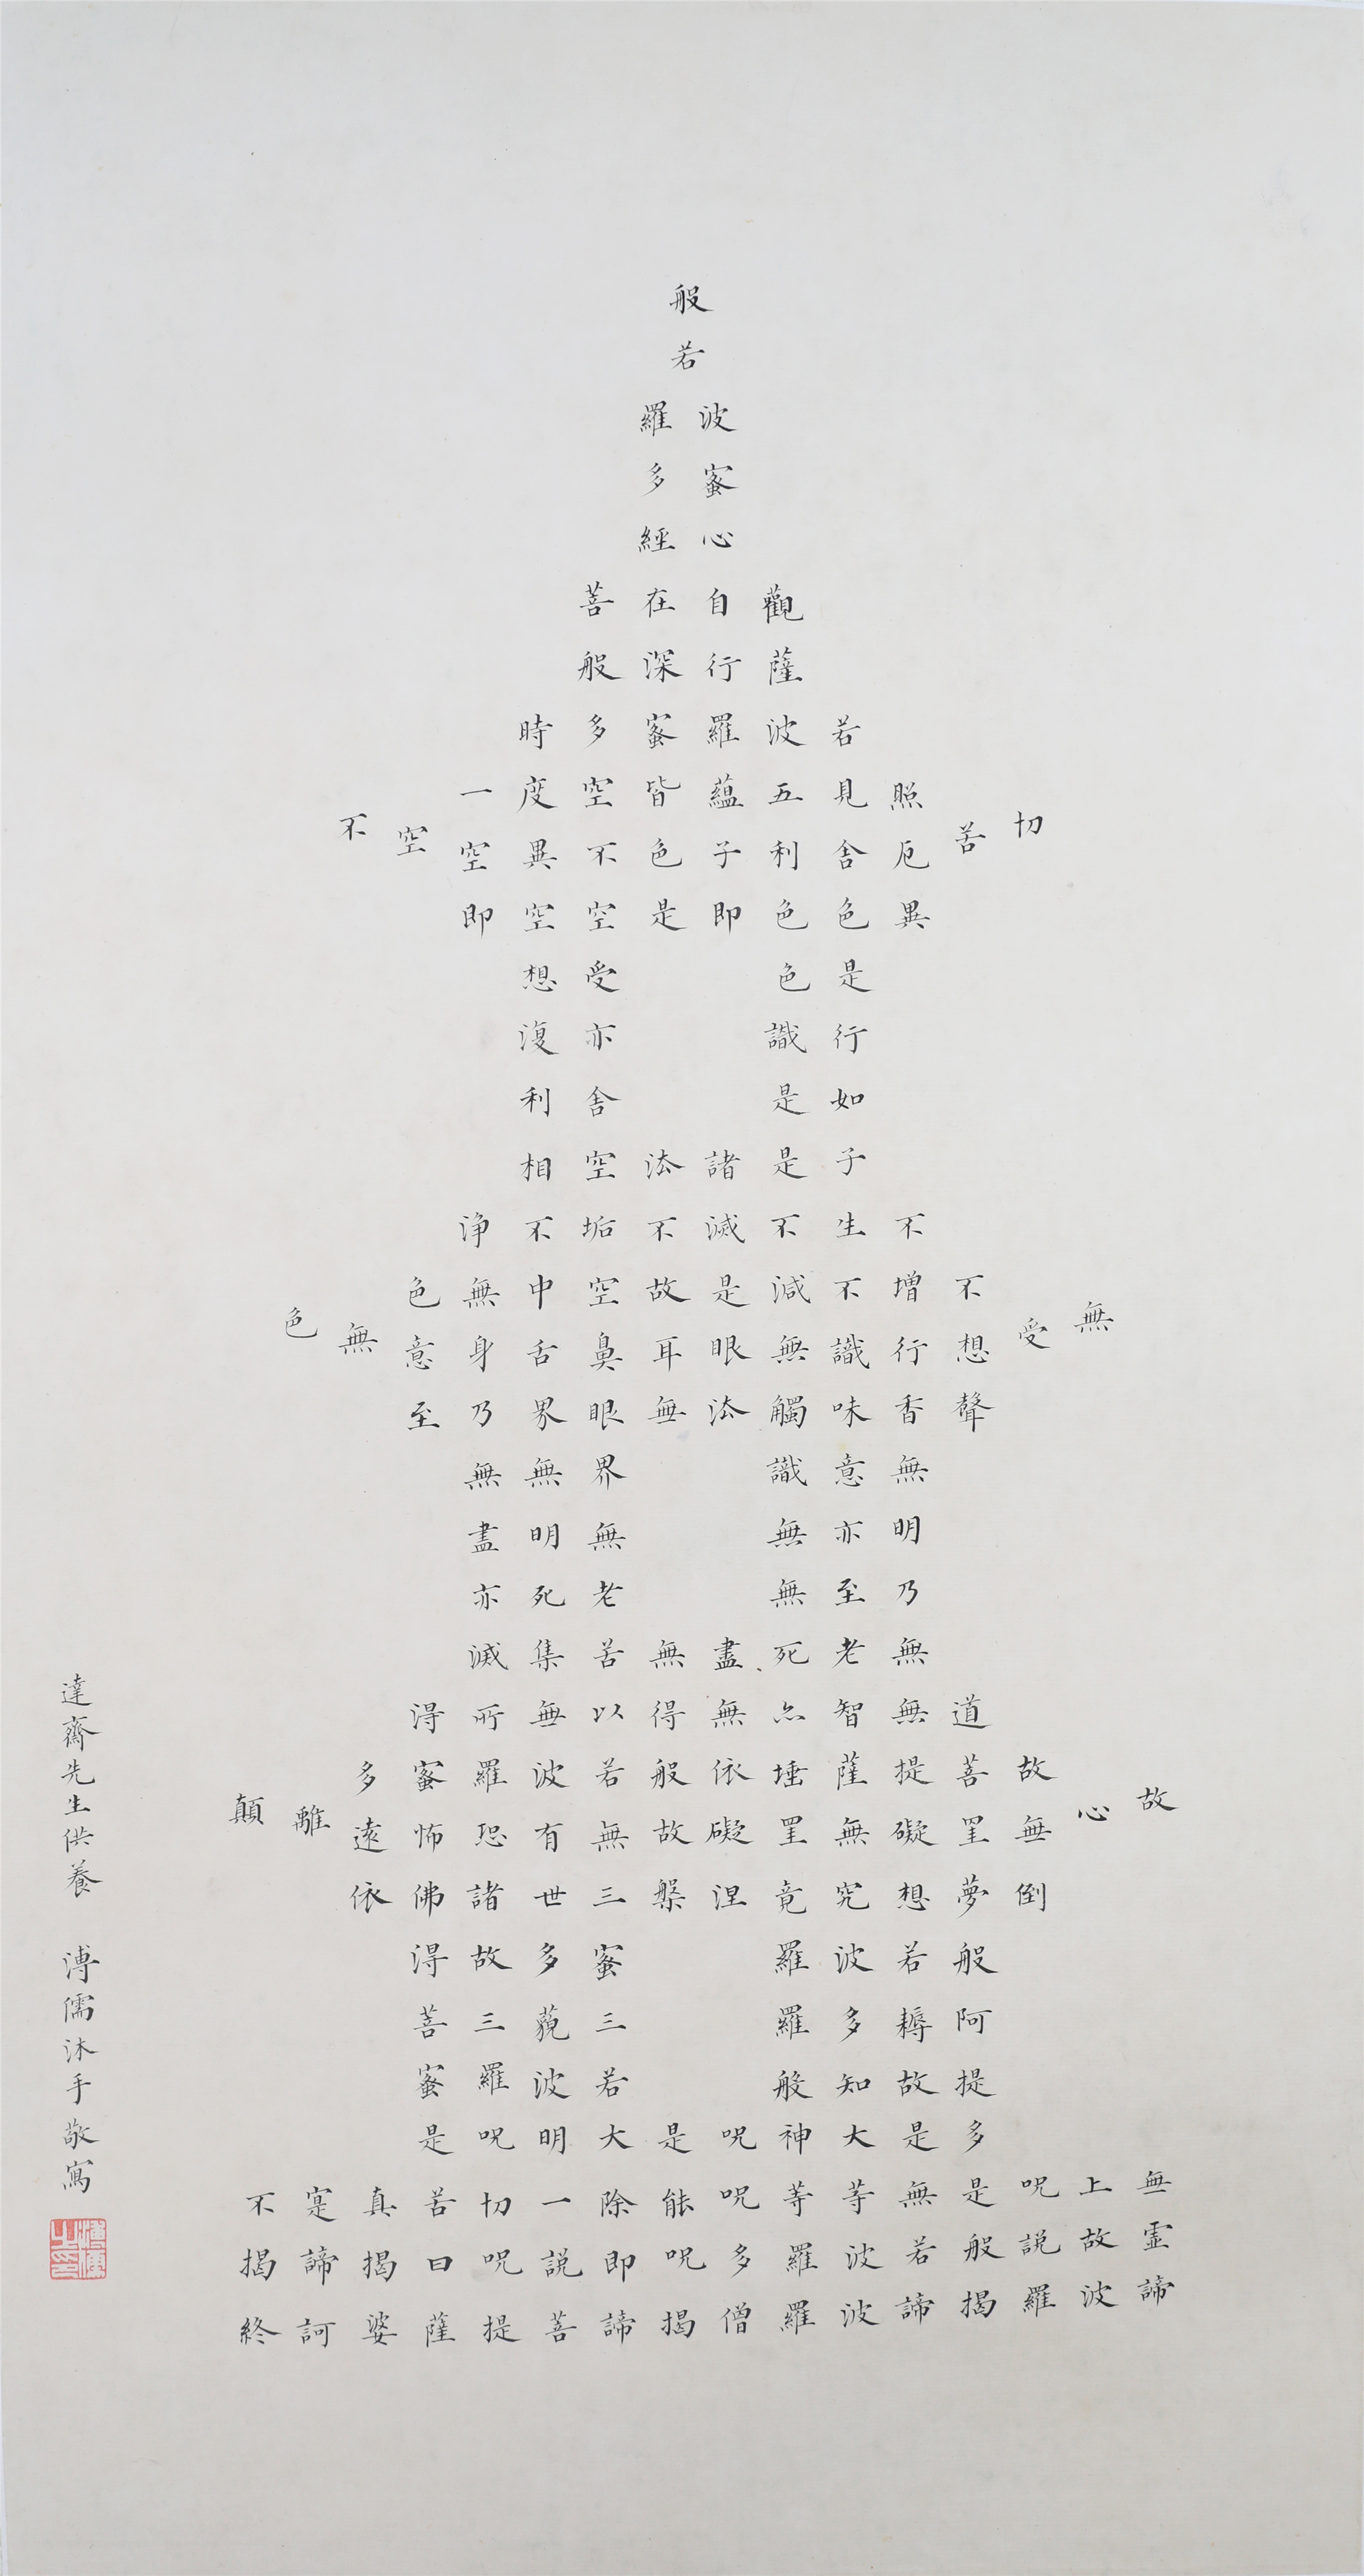 般
若
波羅
蜜多
心經
觀自在菩
薩行深般
若波羅蜜多時
照見五蘊皆空度一
切苦厄舍利子色不異空空不
異色色即是空空即
是色受想
行識亦復
如是舍利
子是諸法空相
不生不滅不垢不淨
不增不減是故空中無色
無受想行識無眼耳鼻舌身意無色
聲香味觸法無眼界乃至
無意識界無無
明亦無無明盡
乃至無老死亦
無老死盡無苦集滅
道無智亦無得以無所得
故菩提薩埵依般若波羅蜜多
故心無罣礙無罣礙故無有恐怖遠離顛
倒夢想究竟涅槃三世諸佛依
般若波羅蜜多故得
阿耨多羅三藐三菩
提故知般若波羅蜜
多是大神呪是大明呪是
無上呪是無等等呪能除一切苦真寔不
霊故説般若波羅多呪即説呪曰揭諦揭
諦波羅揭諦波羅僧揭諦菩提薩婆訶終
達齋先生供養 溥儒沐手敬寫